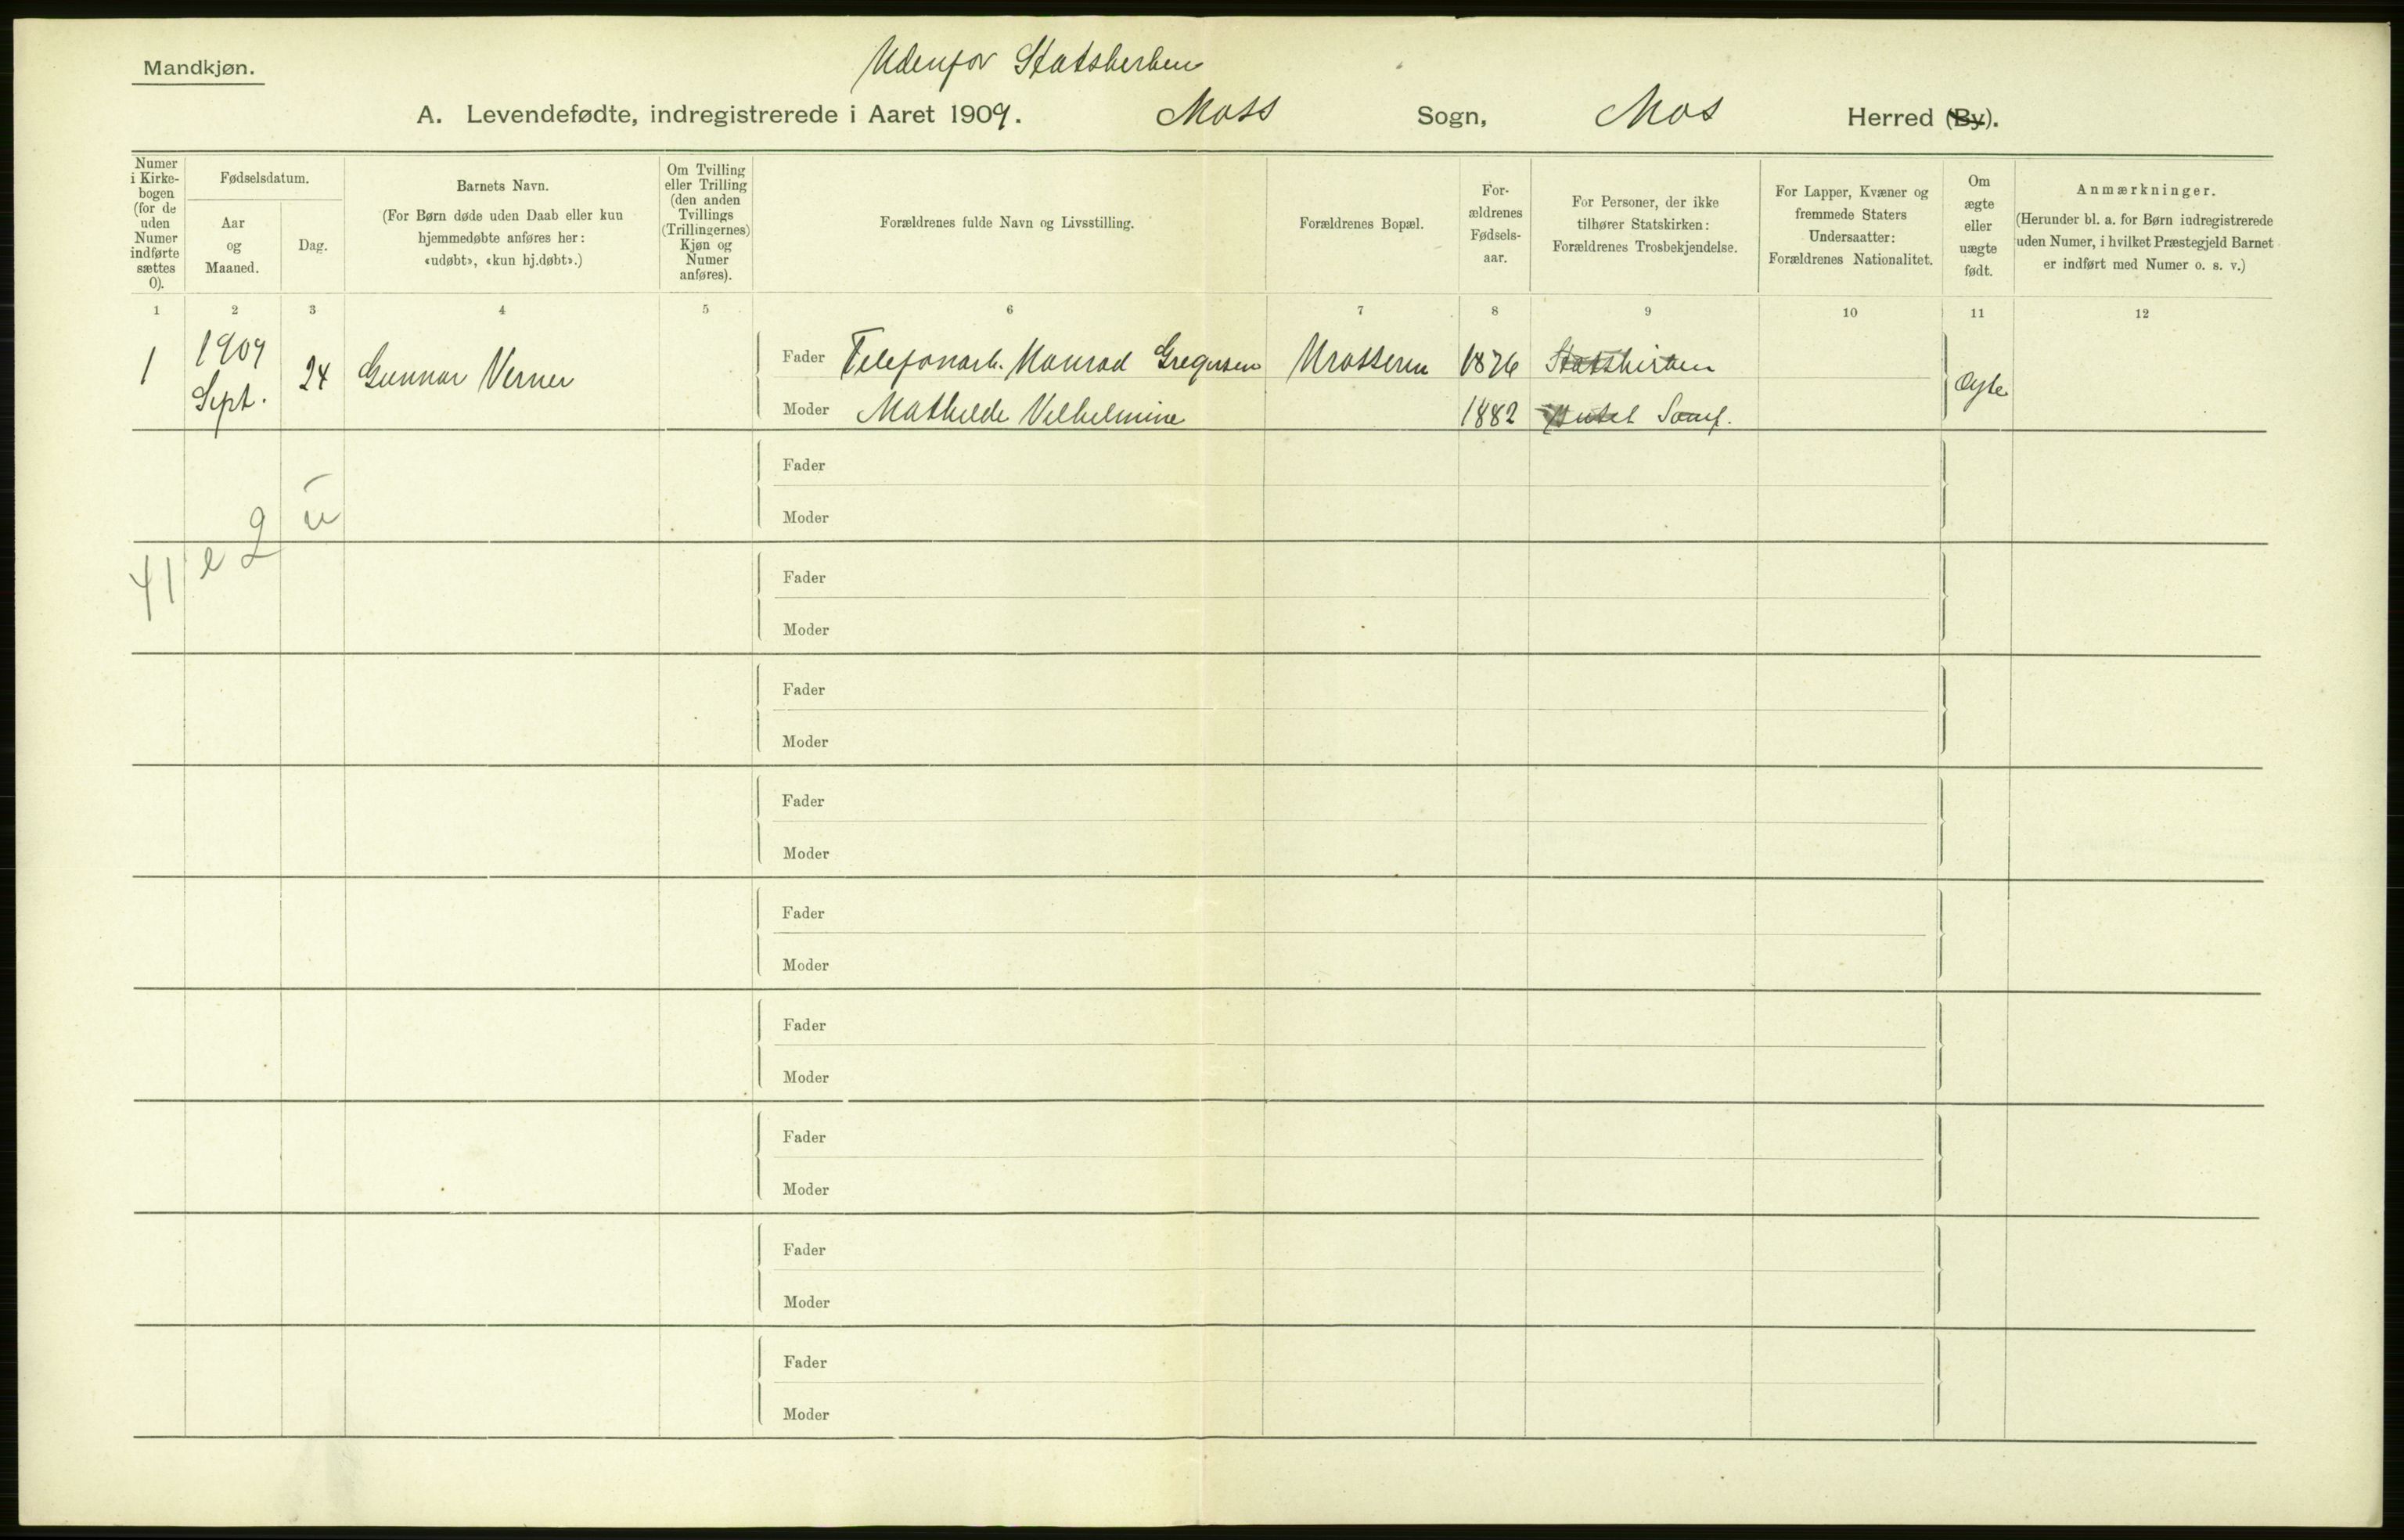 Mandkjøn.
Udenfor Statskirken
A. Levendefødte, indregistrerede i Aaret 1909. Moss Sogn, Mos Herred (By).
Numer i Kirke-bogen (for de uden Numer indførte sættes 0).
Fødselsdatum.
Aar og Maaned.
Dag.
Barnets Navn.
(For Børn døde uden Daab eller kun
hjemmedøbte anføres her:
«udøbt», «kun hj.døbt».)
Om Tvilling
eller Trilling
(den anden
Tvillings
(Trillingernes)
Kjøn og
Numer
anføres).
Forældrenes fulde Navn og Livsstilling.
Forældrenes Bopæl.
For-
ældrenes
Fødsels-
aar.
For Personer, der ikke
tilhører Statskirken:
Forældrenes Trosbekjendelse.
For Lapper, Kvæner og
fremmede Staters
Undersaatter:
Forældrenes Nationalitet.
Om
ægte
eller
uægte
født.
Anmærkninger.
(Herunder bl. a. for Børn indregistrerede
uden Numer, i hvilket Præstegjeld Barnet
er indført med Numer o. s. v.)
1 2 3 4 5 6 7 8 9 10 11 12
1 1909 Sept. 24 Gunnar Verner
Fader Telefonarb. Konrad Gregersen Krosseren 1876 Statskirken
Moder Mathilde Vilhelmine 1882 Samf.
Ægte
Fader
Moder
Fader
Moder
Fader
Moder
Fader
Moder
Fader
Moder
Fader
Moder
Fader
Moder
Fader
Moder
Fader
Moder